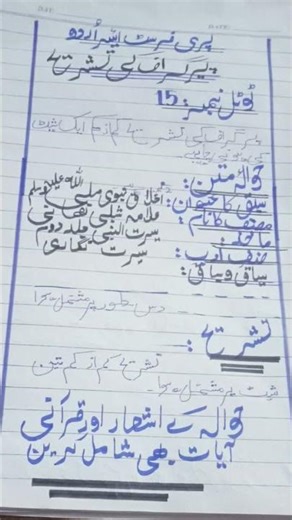 پری فرسٹ ایئر اُردو
پیراگراف کی تشریح
ٹوٹل نمبرز 15
پیراگراف کی تشریح کم از کم ایک
حوالہ متن:
سبق کا عنوان: اخلاقِ نبوی صلی اللہ علیہ وسلم
مصنف کا نام: علامہ شبلی نعمانی
ماخذ: سیرت النبی جلد دوم
صنفِ ادب: سیرت نگاری
سیاق و سباق:
دس سطور پر مشتمل ہو گا
تشریح:
تشریح کم از کم تین
پر مشتمل ہو۔
حوالہ کے اشعار اور قرآنی
آیات بھی شامل کریں